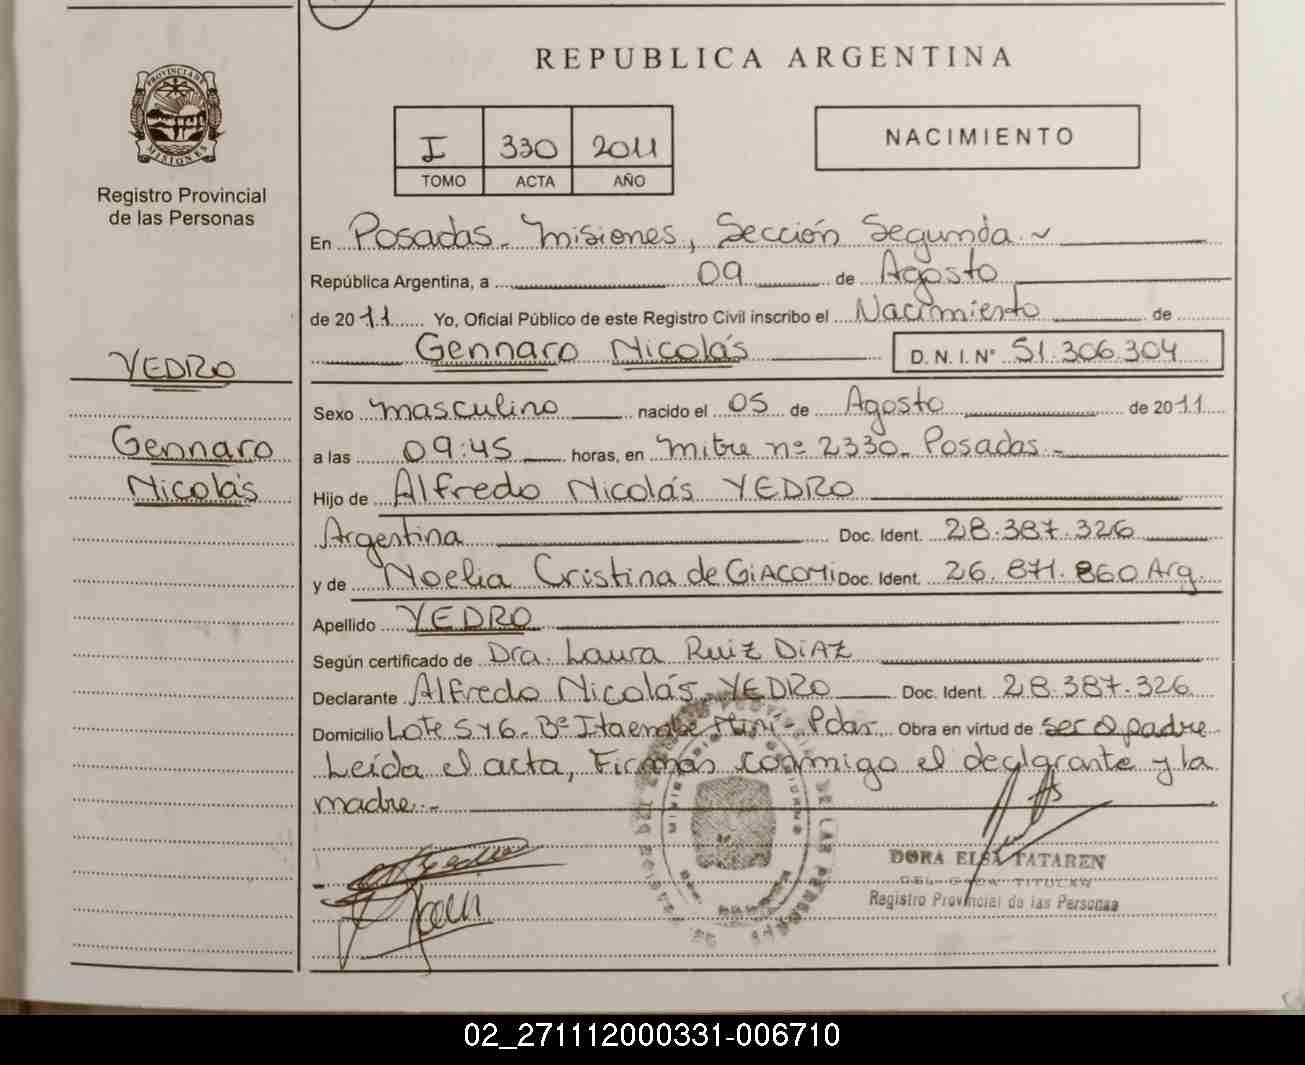 REPUBLICA ARGENTINA
PROVINCIA DE
MISIONES
Registro Provincial
de las Personas
I 330 2011
TOMO ACTA AÑO
NACIMIENTO
En Posadas - Misiones, Sección Segunda
República Argentina, a 09 de Agosto
de 2011 Yo, Oficial Público de este Registro Civil inscribo el Nacimiento de
Gennaro Nicolás D. N. I. Nº 51.306.304
YEDRO
Gennaro
Nicolás
Sexo masculino nacido el 05 de Agosto de 2011
a las 09:45 horas, en Mitre nº 2330 - Posadas -
Hijo de Alfredo Nicolás YEDRO
Argentina Doc. Ident. 28.387.326
y de Noelia Cristina de GiACOMi Doc. Ident. 26.871.860 Arg.
Apellido YEDRO
Según certificado de Dra. Laura Ruiz DiAZ
Declarante Alfredo Nicolás YEDRO Doc. Ident. 28.387.326
Domicilio Lote 5 y 6 - Bº Itaembé Mini - Pdas - Obra en virtud de ser el padre
Leída el acta, Firman conmigo el declarante y la
madre. -
DORA ELSA TATAREN
TITULAR
Registro Provincial de las Personas
DE LAS PERSONAS
02_271112000331-006710